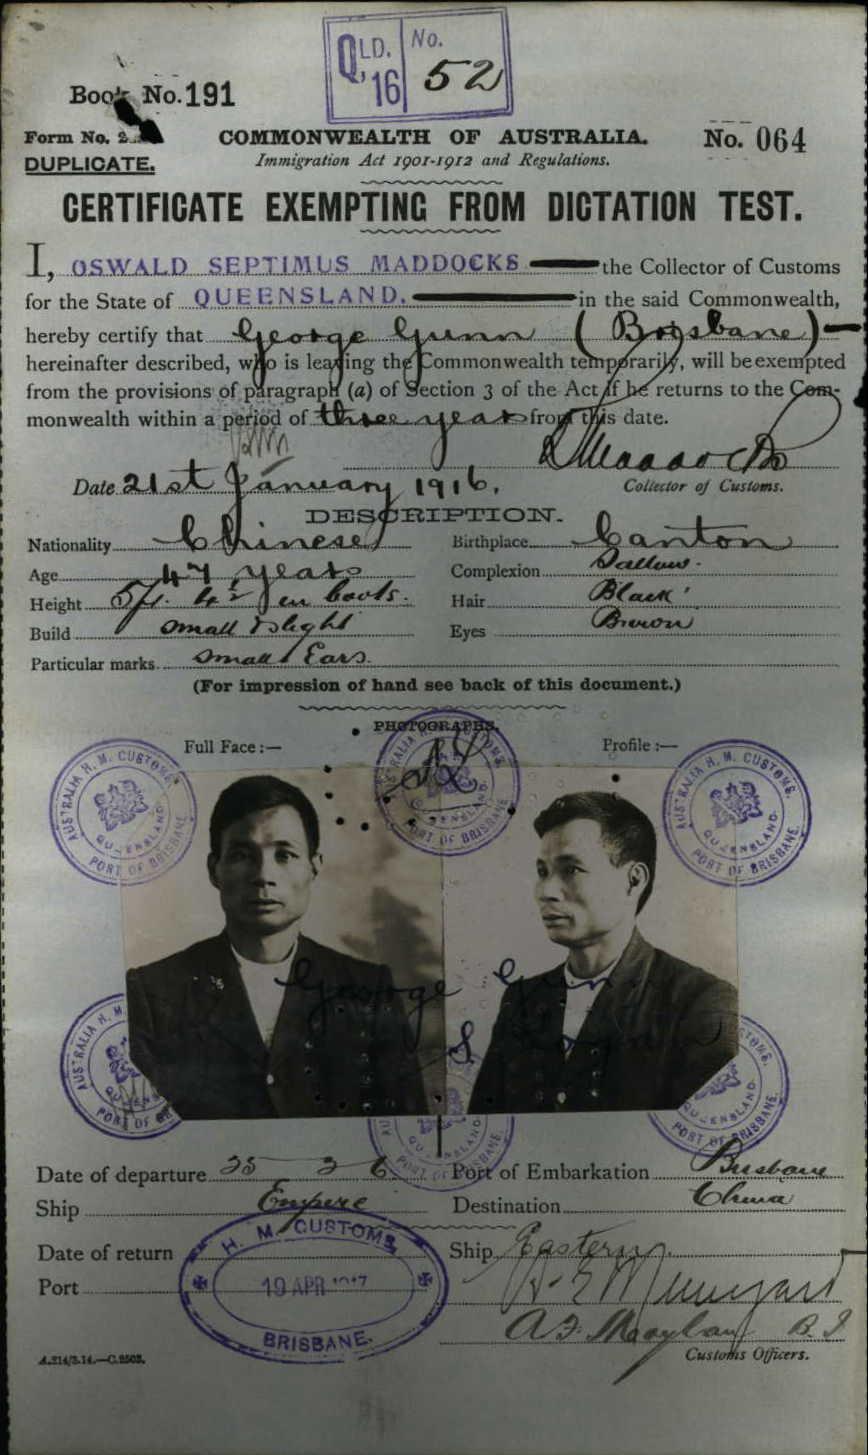 QLD. No.
Q, 16 52
Book No. 191
Form No. 2
COMMONWEALTH OF AUSTRALIA.
No. 064
DUPLICATE.
Immigration Act 1901-1912 and Regulations.
CERTIFICATE EXEMPTING FROM DICTATION TEST.
I, OSWALD SEPTIMUS MADDOCKS the Collector of Customs
for the State of QUEENSLAND. in the said Commonwealth,
hereby certify that George Gunn (Brisbane)
hereinafter described, who is leaving the Commonwealth temporarily, will be exempted
from the provisions of paragraph (a) of Section 3 of the Act if he returns to the Com-
monwealth within a period of three years from this date.
Maddocks
Date 21st January 1916. Collector of Customs.
DESCRIPTION.
Nationality Chinese Birthplace Canton
Age 47 years Complexion Sallow.
Height 5ft. 4½ in boots. Hair Black
Build Small & slight Eyes Brown
Particular marks. Small Ears.
(For impression of hand see back of this document.)
PHOTOGRAPHS.
Full Face :— Profile :—
AUSTRALIA H. M. CUSTOMS. QUEENSLAND. PORT OF BRISBANE
AUSTRALIA QUEENSLAND. PORT OF BRISBANE
AUSTRALIA H. M. CUSTOMS. QUEENSLAND. PORT OF BRISBANE
George Gun
AUSTRALIA H. M. PORT OF
QUEENSLAND. PORT OF BRISBANE
Date of departure Port of Embarkation Brisbane
Ship Empire Destination China
Date of return Ship Eastern
Port
H. M. CUSTOMS,
19 APR
BRISBANE.
Customs Officers.
A.214/3.14.—C.2503.